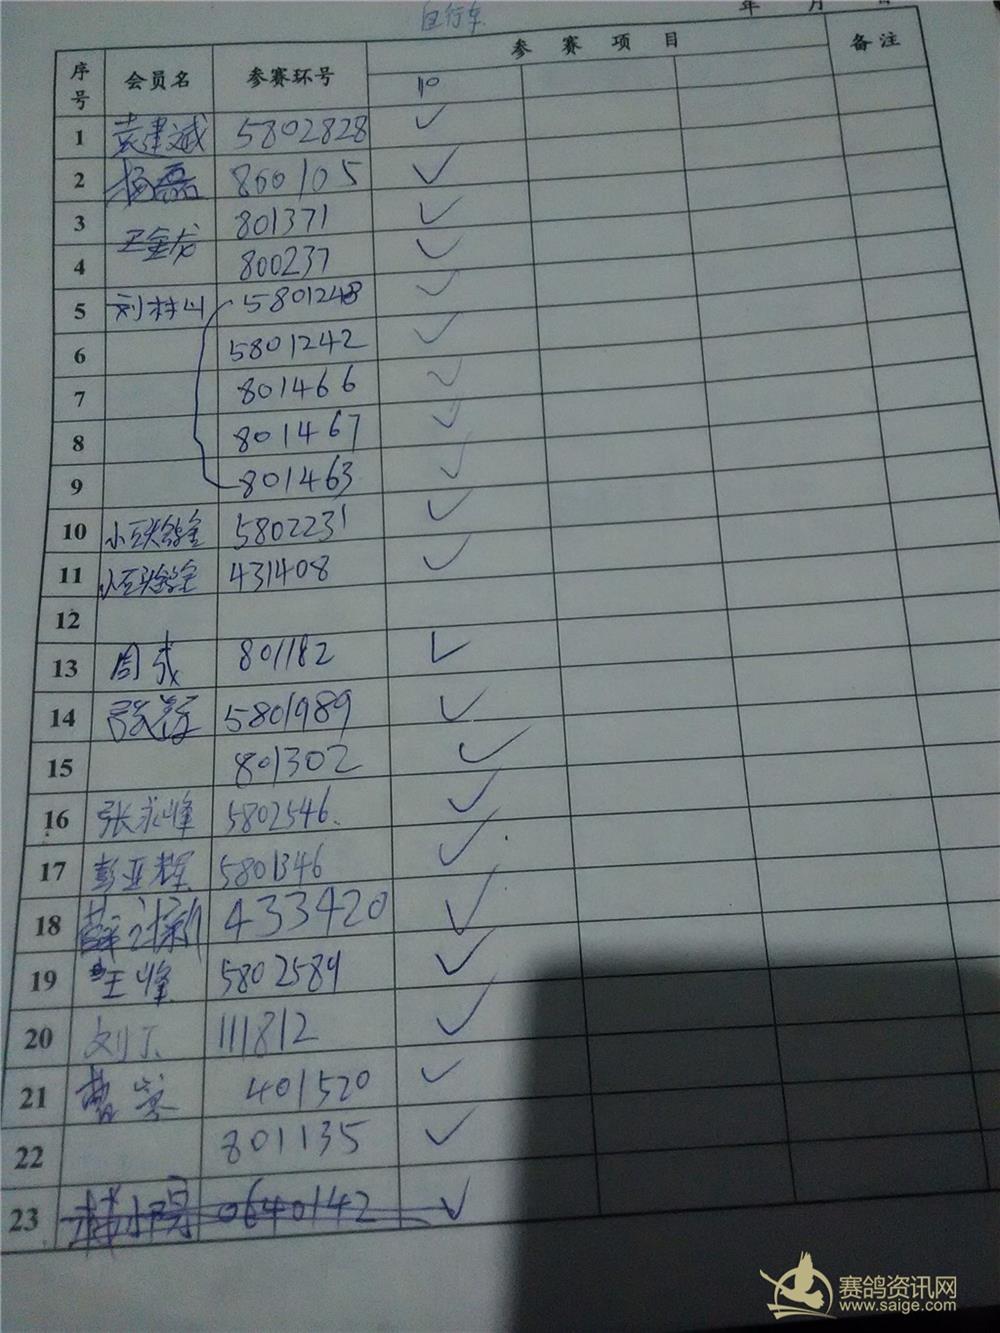 自行车
年 月 日
序号 会员名 参赛环号 参赛项目 备注
10
1 袁建斌 5802828 ✓
2 杨磊 860105 ✓
3 卫金龙 801371 ✓
4 800237 ✓
5 刘林山 5801248 ✓
6 5801242 ✓
7 801466 ✓
8 801467 ✓
9 801463 ✓
10 5802231 ✓
11 431408 ✓
12
13 周成 801182 ✓
14 5801989 ✓
15 801302 ✓
16 张永峰 5802546 ✓
17 彭亚辉 5801346 ✓
18 433420 ✓
19 王峰 5802589 ✓
20 111812 ✓
21 401520 ✓
22 801135 ✓
23 0640142 ✓
赛鸽资讯网
www.saige.com